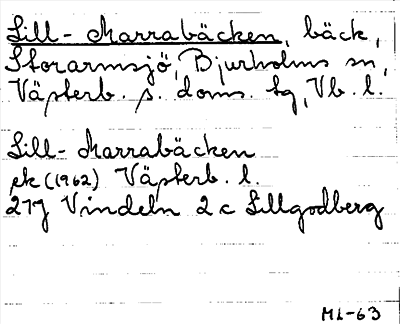 Lill-Marrabäcken, bäck,
Storarmsjö, Bjurholms sn,
Västerb. s. doms. tg, Vb. l.
Lill-Marrabäcken
ek (1962) Västerb. l.
21J Vindeln 2c Lillgodberg
ML-63